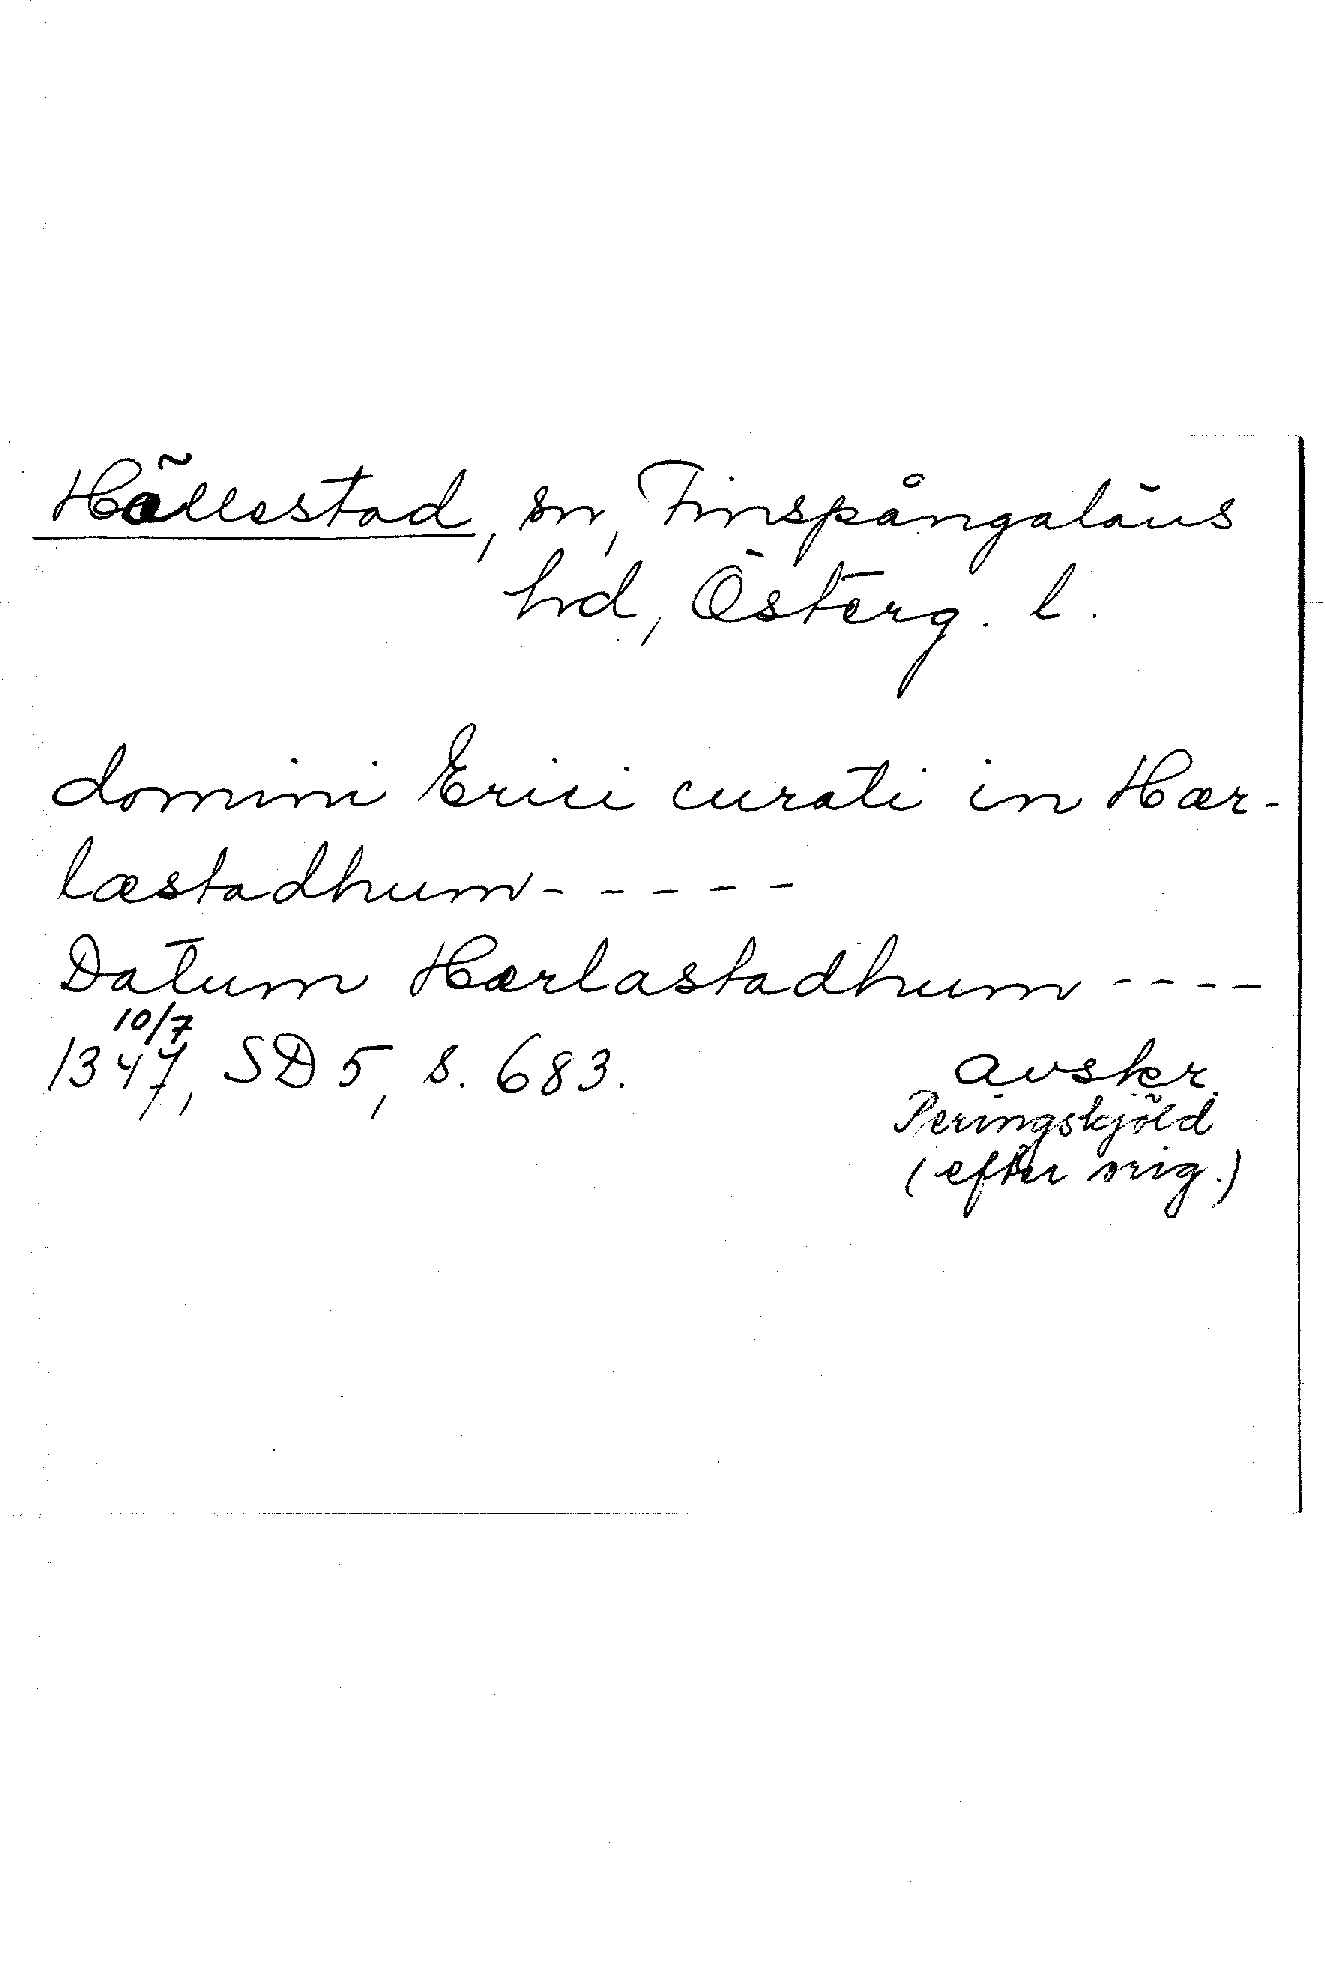 Hällestad, sn, Finspångaläns
hd, Österg. l.
domini Erici curati in Hær-
læstadhum - - - - -
Datum Hærlastadhum - - - -
10/7
1347, SD 5, s. 683.
avskr.
Peringskjöld
(efter orig.)